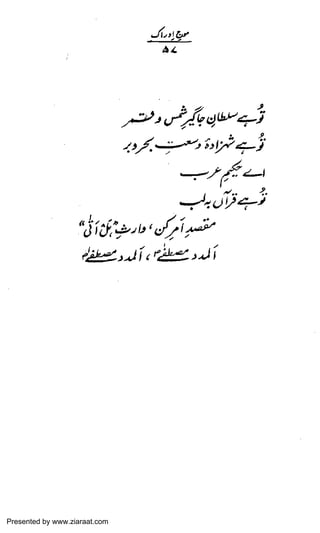 موجِ ادراک
۵۷
تُو ہے سلطانِ جاگیرِ شمس و قمر
تُو ہے شہزادۂ وسعتِ بحر و بر
اے حکیمِ عرب
تُو ہے قرآں بہ لب
مقصدِ اَمرِ کُن، وارثِ "ھَل اَتٰی"
اَلمدد مصطفٰےؐ، اَلمدد مصطفٰےؐ
Presented by www.ziaraat.com